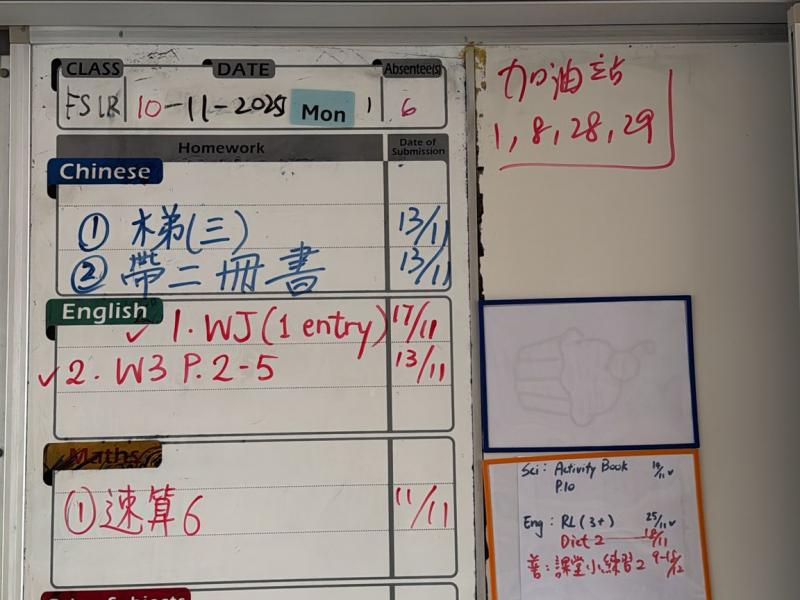 CLASS DATE Absentee(s)
10-11-2025 Mon 6
Homework Date of Submission
Chinese
① 梯(三) 13/11
② 帶二冊書 13/11
English
✓ 1. WJ (1 entry) 17/11
✓ 2. W3 P. 2-5 13/11
Maths
① 速算6 11/11
加油站
1, 8, 28, 29
Sci: Activity Book
P.10
Eng: RL (3+) 25/11 ✓
Dict 2
課堂小練習2